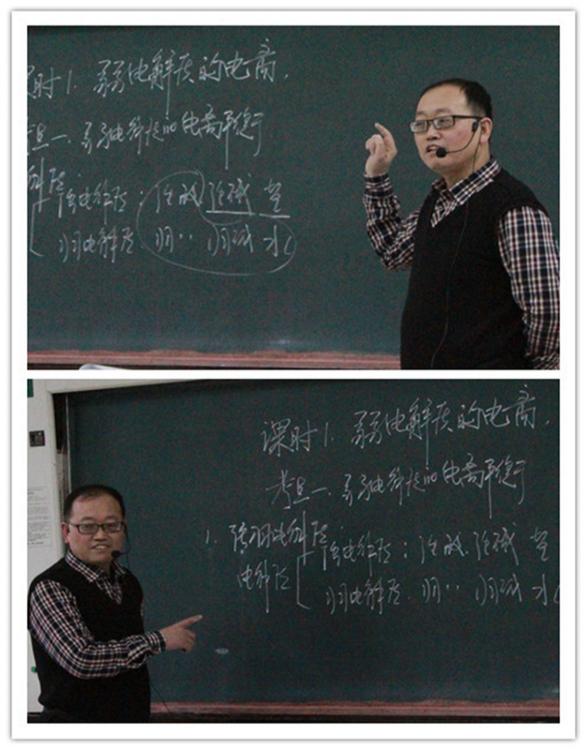 课时1. 弱电解质的电离.
考点一、弱电解质的电离平衡
强电解质: 强酸 强碱 盐
弱电解质 弱·· 弱碱 水
课时1. 弱电解质的电离.
考点一、弱电解质的电离平衡
1. 强弱电解质
电解质
强电解质: 强酸 强碱 盐
弱电解质 弱·· 弱碱 水